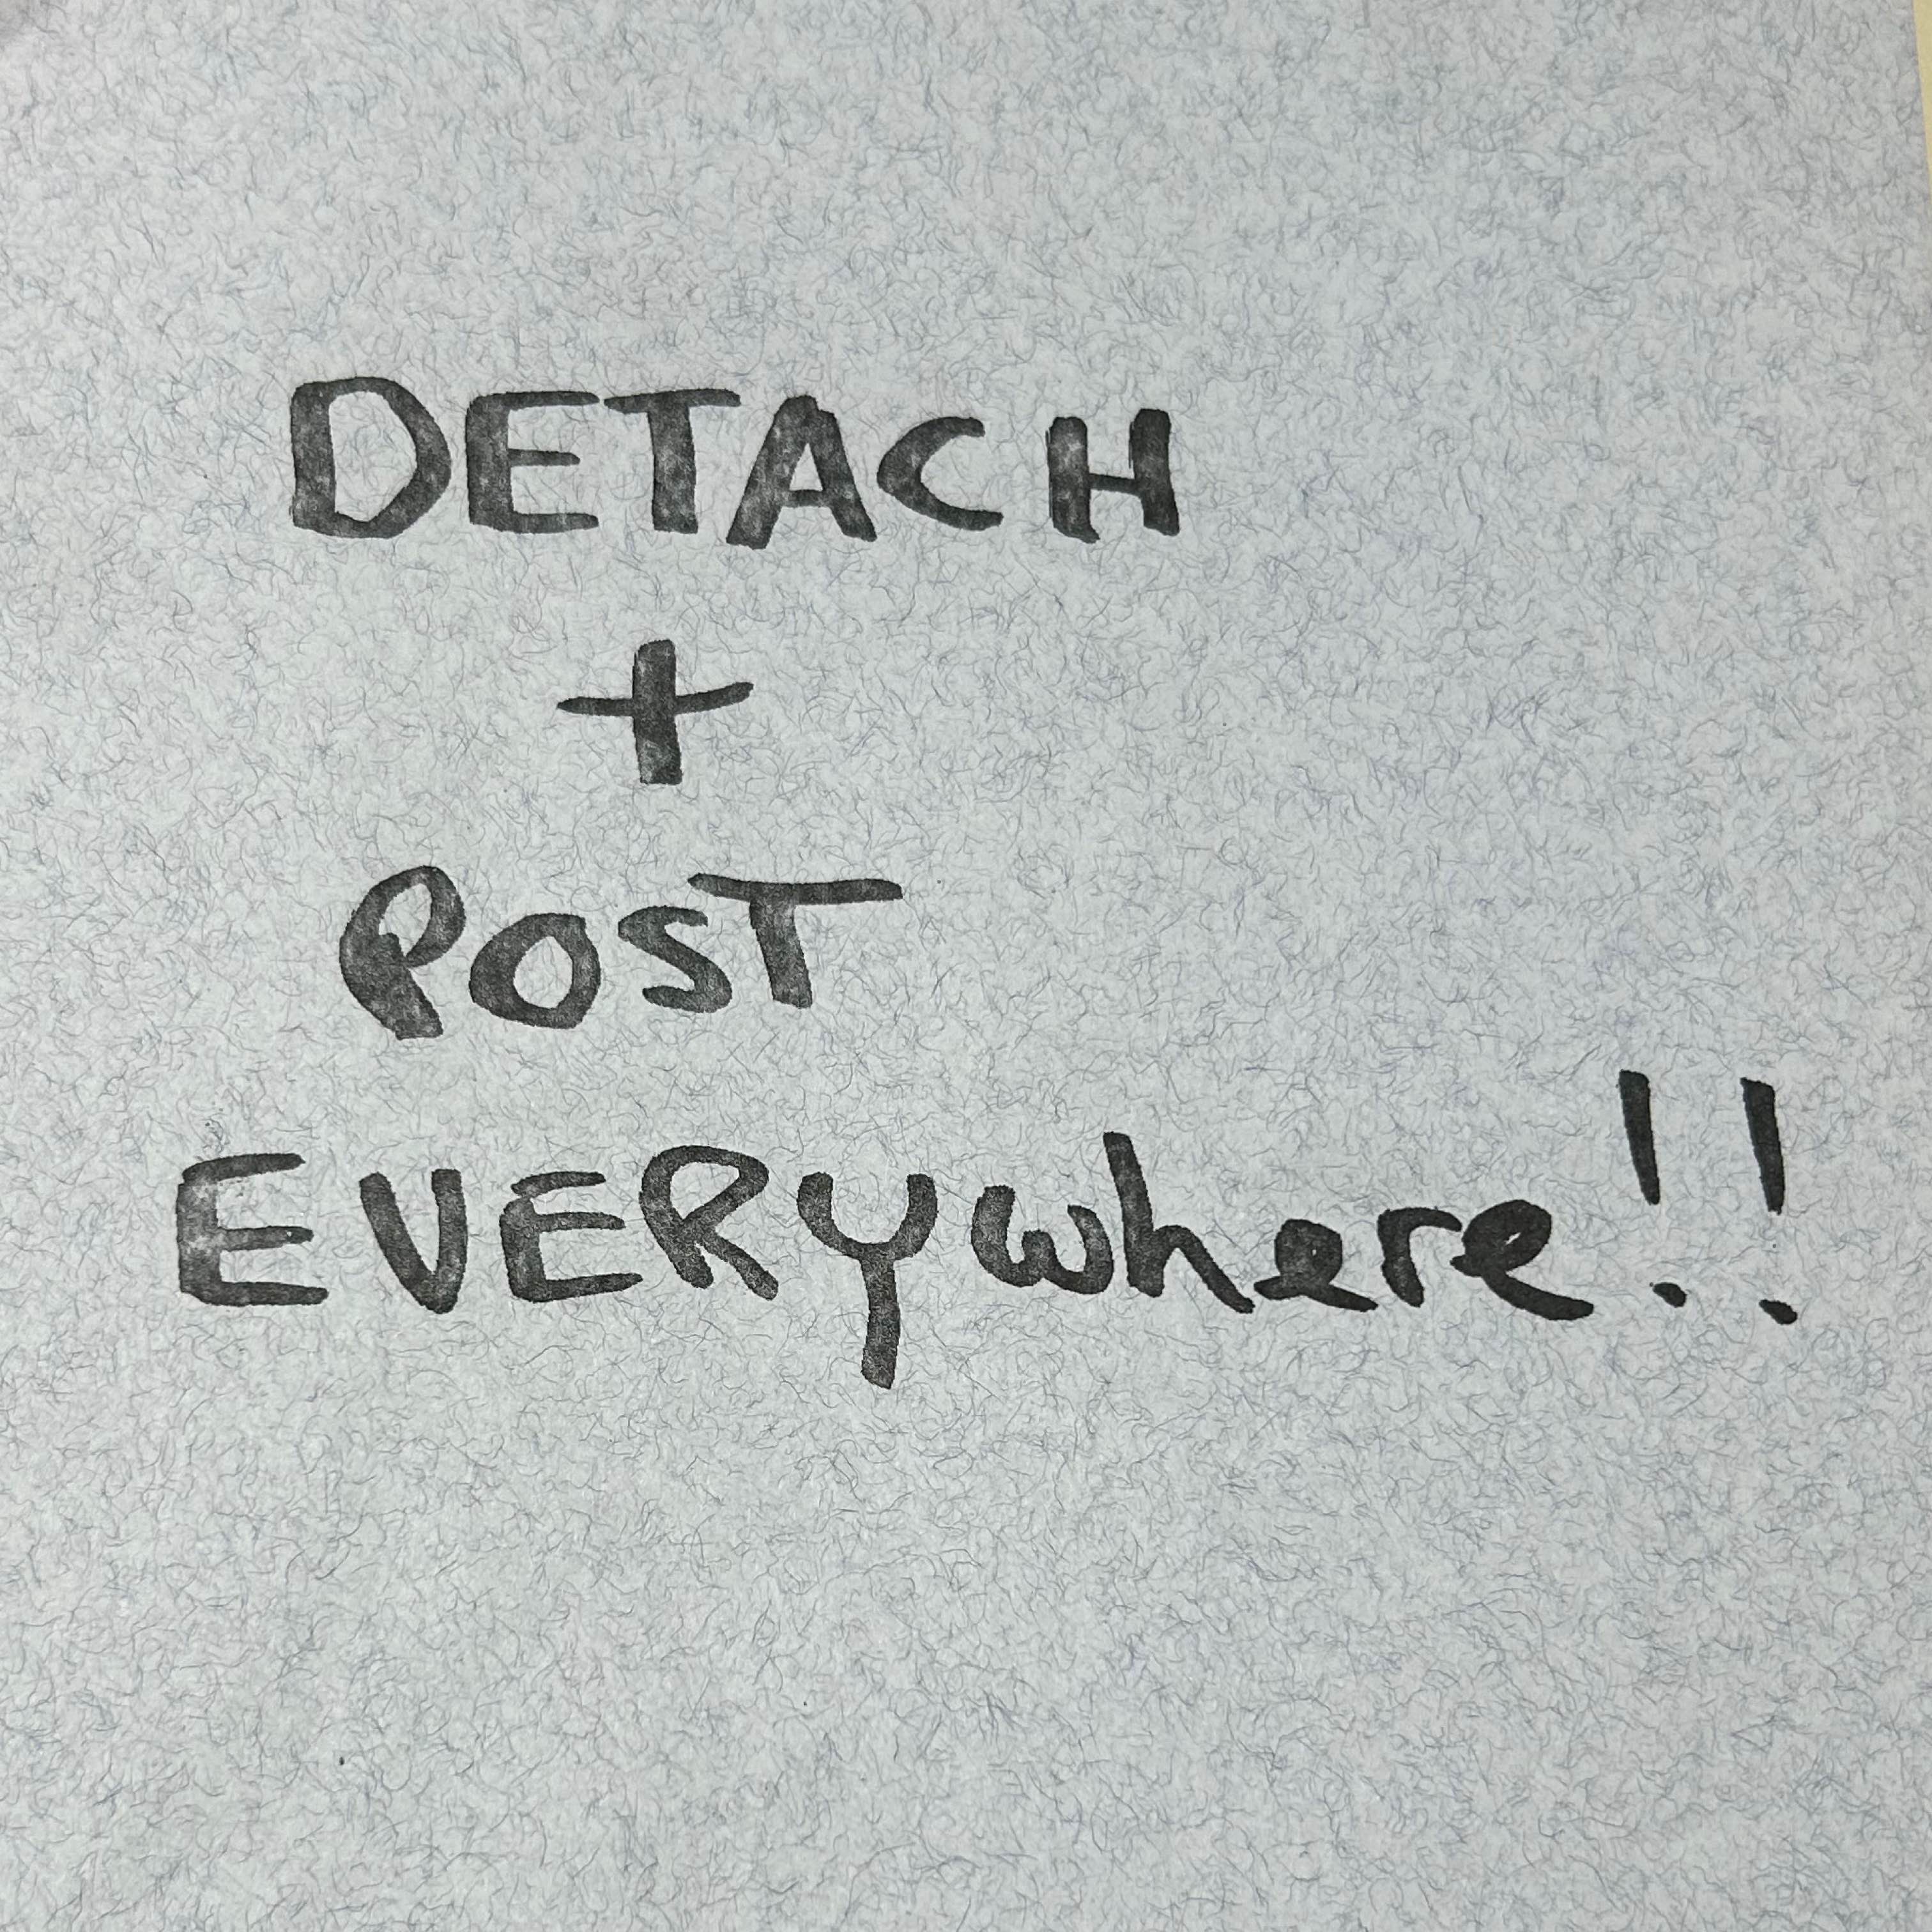 DETACH
+
POST
EVERYwhere!!